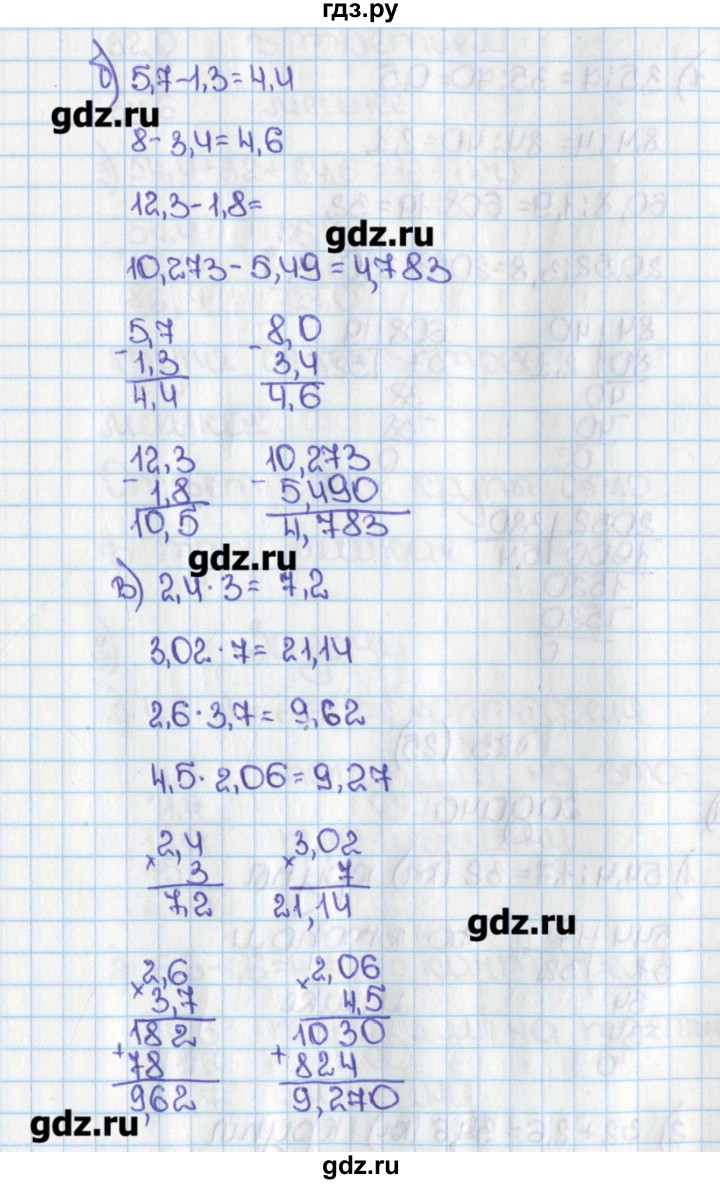 гдз.ру
б) 5,7-1,3=4,4
gdz.ru
8-3,4=4,6
12,3-1,8=
gdz.ru
10,273-5,49=4,783
5,7
- 1,3
4,4
8,0
- 3,4
4,6
12,3
- 1,8
10,5
10,273
- 5,490
4,783
gdz.ru
в) 2,4·3=7,2
3,02·7=21,14
2,6·3,7=9,62
4,5·2,06=9,27
2,4
× 3
7,2
3,02
× 7
21,14
gdz.ru
2,6
× 3,7
182
+ 78
9,62
2,06
× 4,5
1030
+ 824
9,270
gdz.ru
gdz.ru